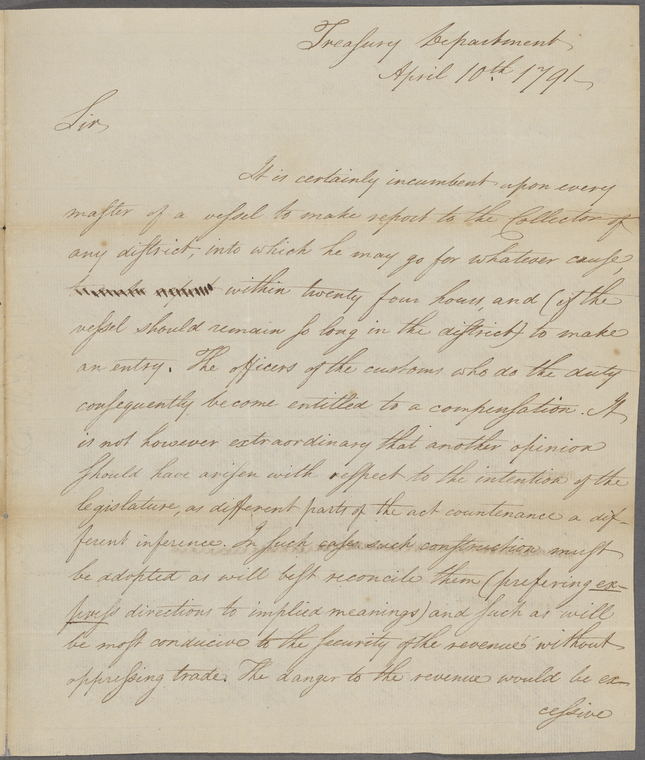 Treasury Department
April 10th 1791
Sir
It is certainly incumbent upon every
master of a vessel to make report to the Collector of
any district, into which he may go for whatever cause,
within twenty four hours, and (if the
vessel should remain so long in the district) to make
an entry. The officers of the customs who do the duty
consequently become entitled to a compensation. It
is not however extraordinary that another opinion
should have arisen with respect to the intention of the
legislature, as different parts of the act countenance a dif-
ferent inference. In such cases such construction must
be adopted as will best reconcile them (prefering ex-
press directions to implied meanings) and such as will
be most conducive to the security of the revenue without
oppressing trade. The danger to the revenue would be ex-
cessive